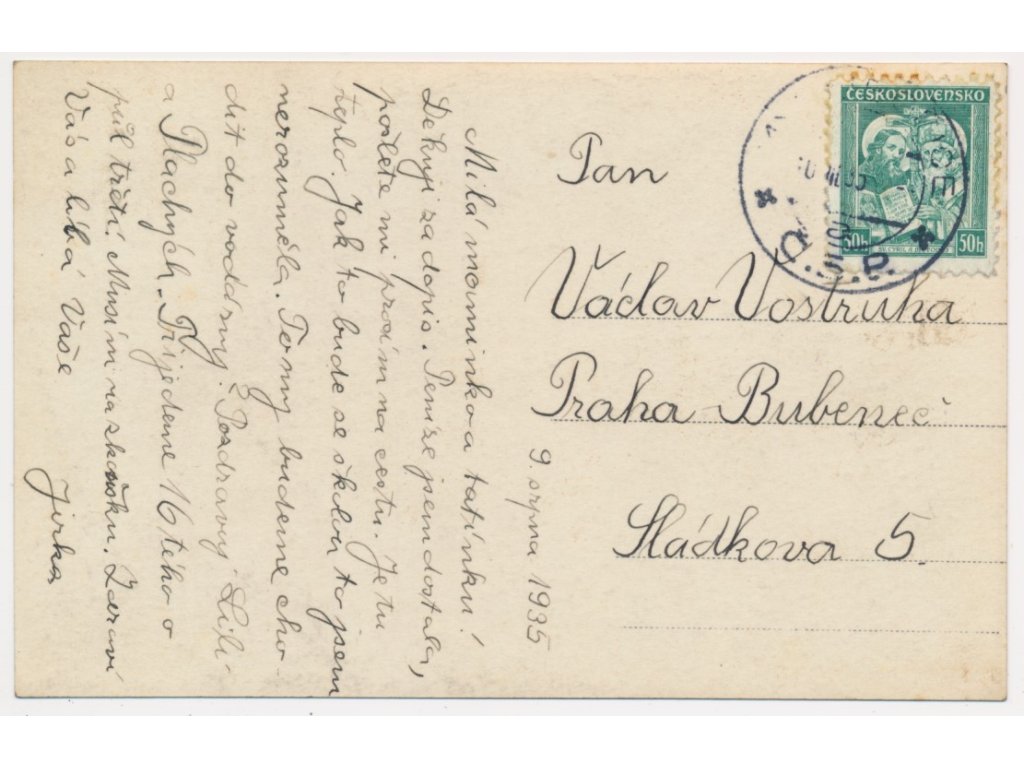 Milá maminko a tatínku!
Děkuji za dopis. Peníze jsem dostala,
pošlete mi prosím na cestu. Je tu
teplo. Jak to bude se školou to jsem
nerozuměla. Tomy budeme cho-
dit do vodárny? Pozdravuj Lili
a Plachých. Přijedeme 16 tého o
půl třetí. Musím na zkoušku. Zdraví
Vás a líbá Vaše
Jirka
9. srpna 1935
Pan
Václav Vostruha
Praha Bubeneč
Sládkova 5.
ČESKOSLOVENSKO
50h 50h
Č.S.P.